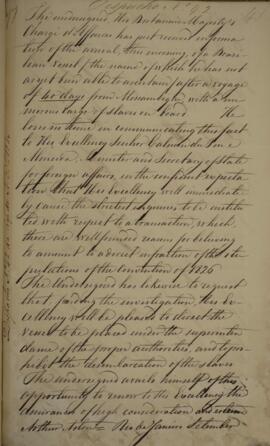 Despacho Nº 92
The undersigned, His Britannic Majesty's
Chargé d'Affaires has just received informa
tion of the arrival, this morning, of a Brazi
lian Vessel (the name of which he has not
as yet been able to ascertain) after a voyage
of 40 days from Mozambique, with a nu
merous cargo of slaves on board. He
loses no time in communicating this fact
to His Excellency Senhor Calmon du Pin e
Almeida, Minister and Secretary of State
for foreign affairs, in the confident expecta
tion that His Excellency will immediate
ly cause the strictest inquiries to be institu
ted with respect to a transaction, which,
there are well founded reasons for believing
to amount to a direct infraction of the sti
pulations of the Convention of 1826
The Undersigned has likewise to request
that pending the investigation His Ex
cellency will be pleased to direct the
Vessel to be placed under the superinten
dance of the proper authorities, and to pro
hibit the disembarcation of the slaves
The Undersigned avails himself of this
opportunity to renew to His Excellency the
assurances of high consideration and esteem
Arthur Aston Rio de Janeiro September